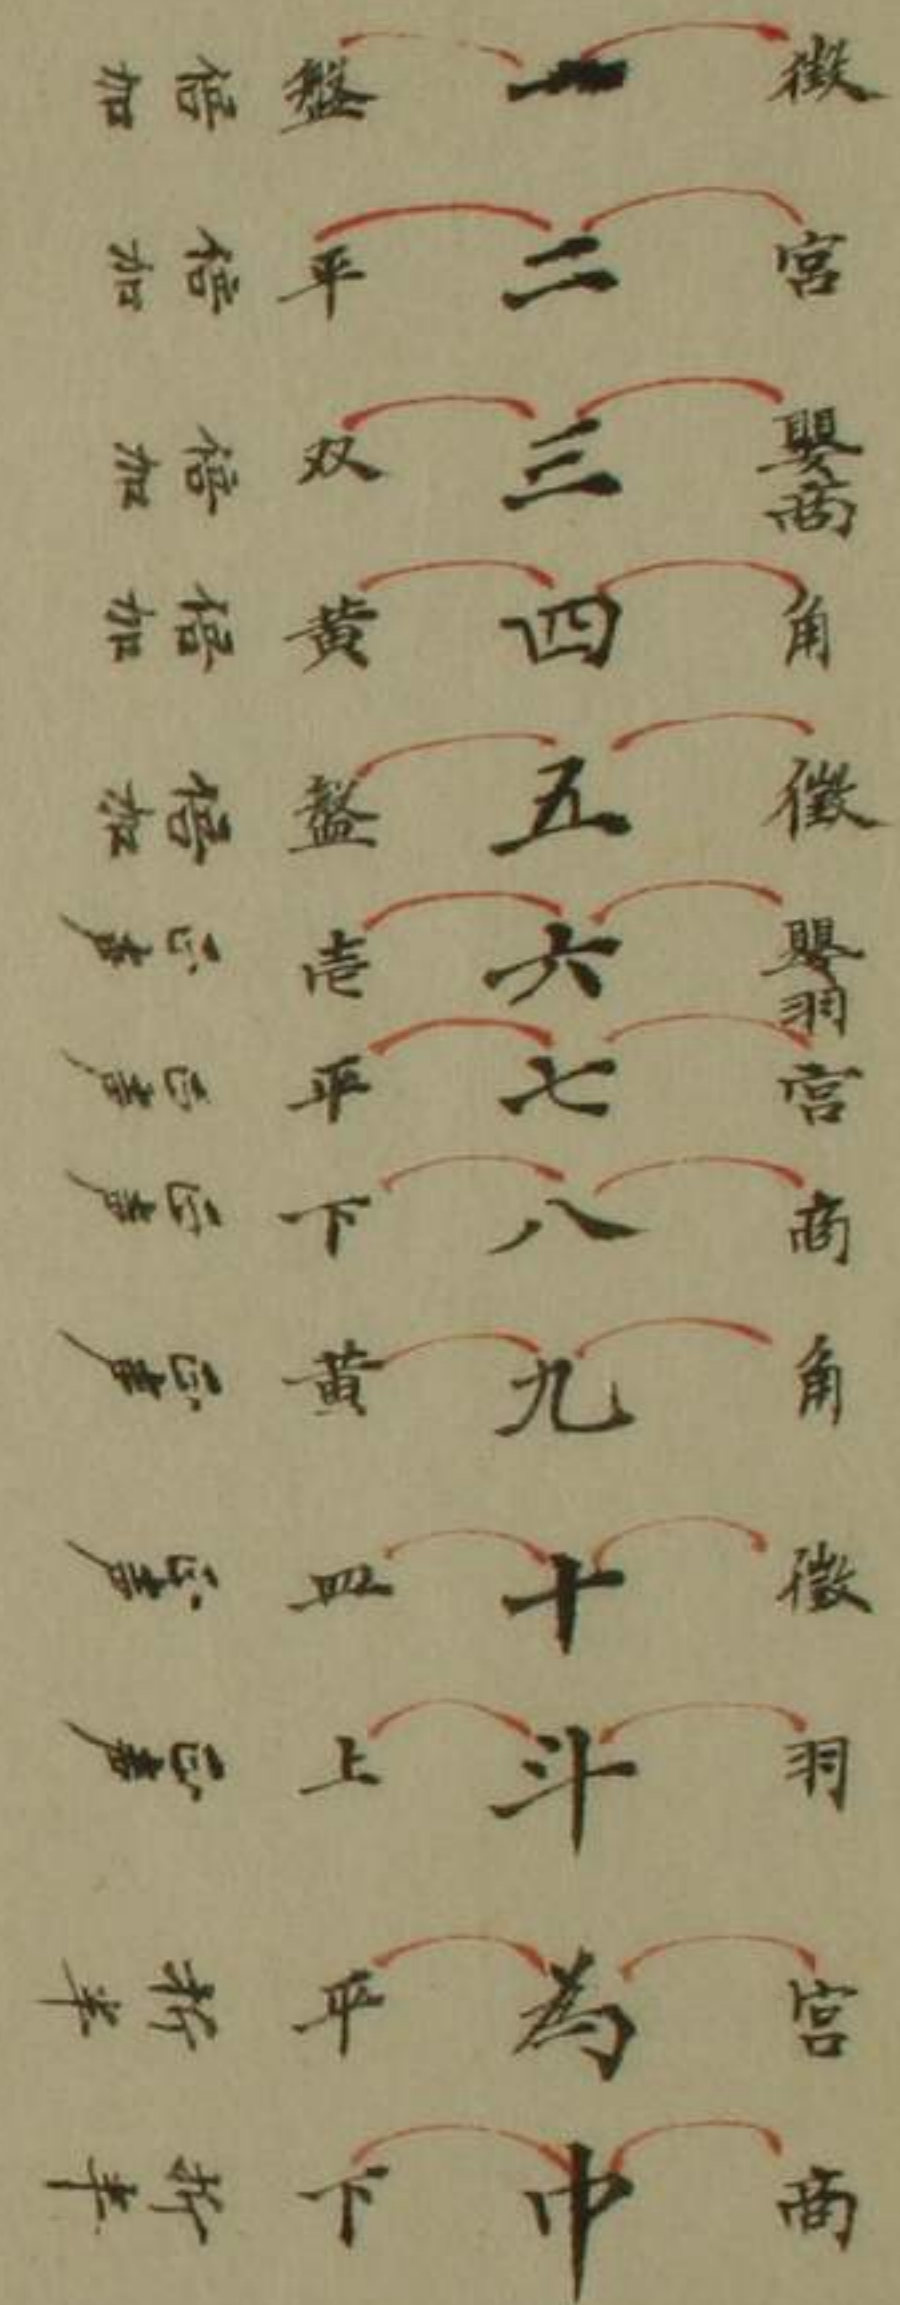 徴 一 盤 倍加
宮 二 平 倍加
嬰商 三 双 倍加
角 四 黄 倍加
徴 五 盤 倍加
嬰羽 六 壱 正声
宮 七 平 正声
商 八 下 正声
角 九 黄 正声
徴 十 皿 正声
羽 斗 上 正声
宮 為 平 折半
商 巾 下 折半